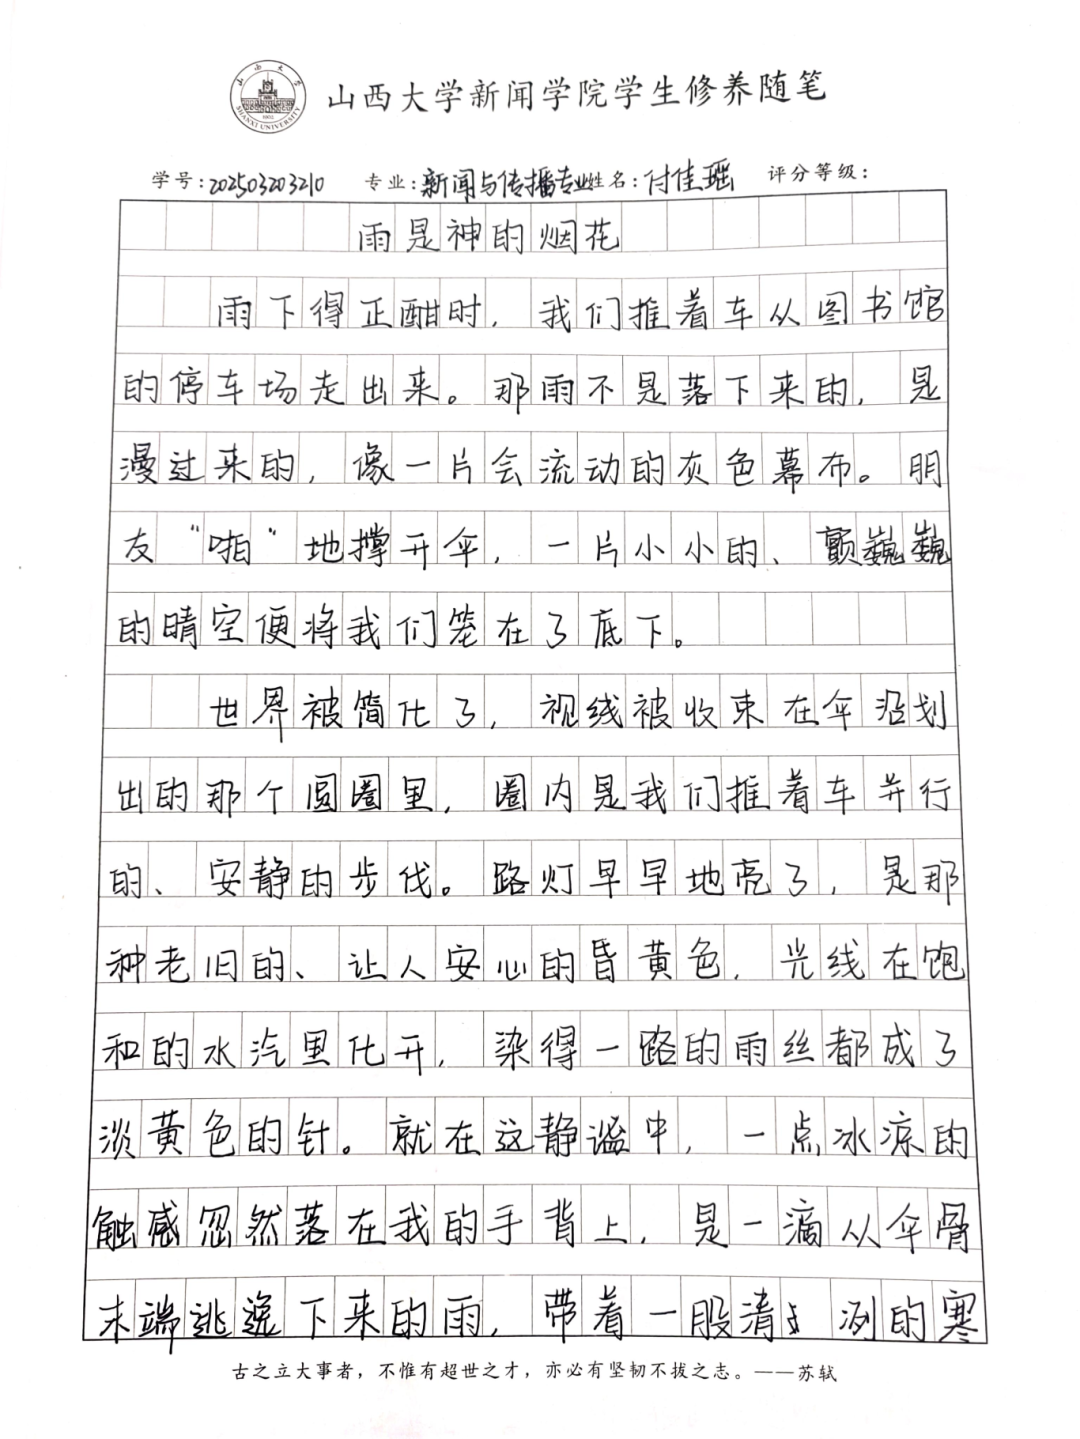 山西大学
SHANXI UNIVERSITY
1902
山西大学新闻学院学生修养随笔
学号:202503203210 专业:新闻与传播专业 姓名:付佳瑶 评分等级:
雨是神的烟花
雨下得正酣时，我们推着车从图书馆
的停车场走出来。那雨不是落下来的，是
漫过来的，像一片会流动的灰色幕布。朋
友“啪”地撑开伞，一片小小的、颤巍巍
的晴空便将我们笼在了底下。
世界被简化了，视线被收束在伞沿划
出的那个圆圈里，圈内是我们推着车并行
的、安静的步伐。路灯早早地亮了，是那
种老旧的、让人安心的昏黄色，光线在饱
和的水汽里化开，染得一路的雨丝都成了
淡黄色的针。就在这静谧中，一点冰凉的
触感忽然落在我的手背上，是一滴从伞骨
末端逃逸下来的雨，带着一股清冽的寒
古之立大事者，不惟有超世之才，亦必有坚韧不拔之志。——苏轼